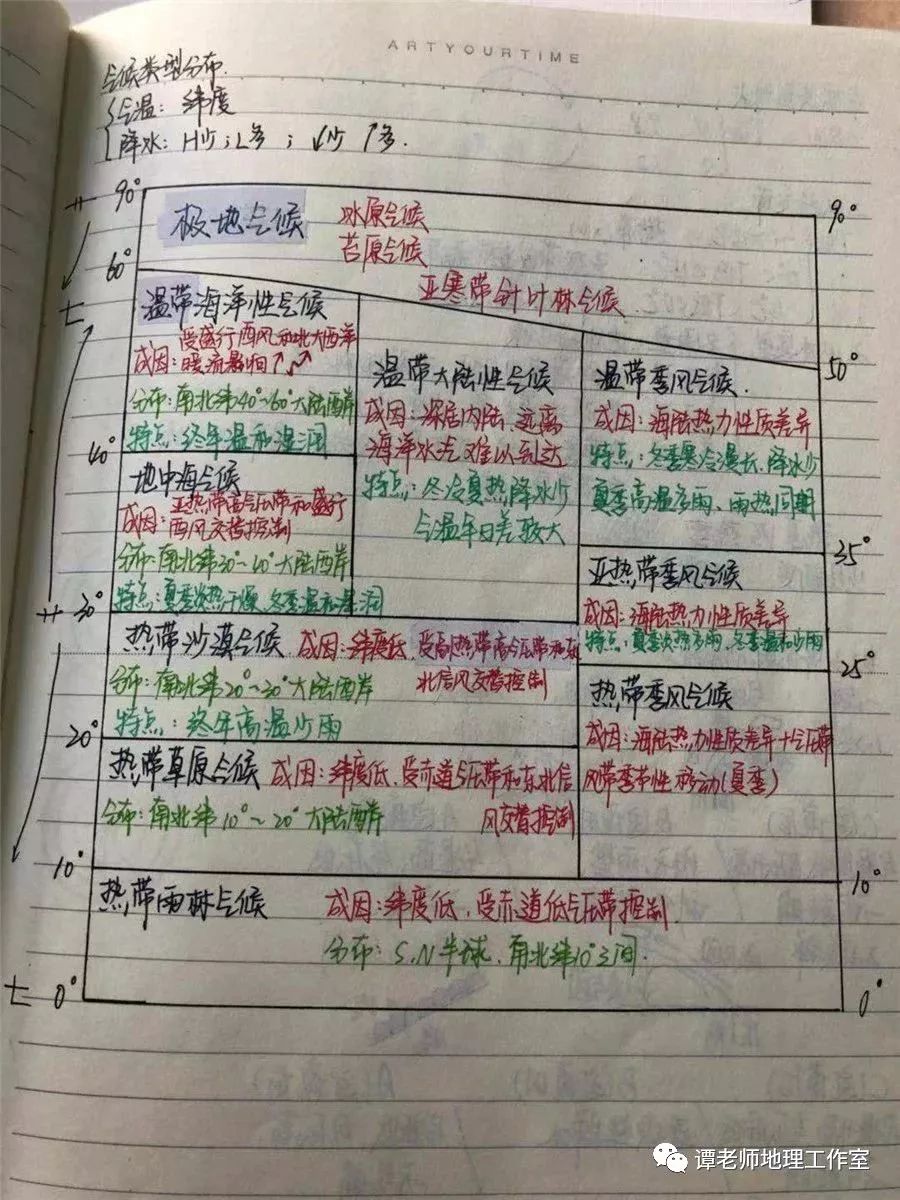 ARTYOURTIME
气候类型分布
气温: 纬度
降水: H少; L多 ; ↓少 ↑多.
90°
90°
极地气候
冰原气候
苔原气候
60°
亚寒带针叶林气候
温带海洋性气候
成因: 受盛行西风和北大西洋
暖流影响
分布: 南北纬40°~60°大陆西岸
特点: 终年温和湿润
50°
温带大陆性气候
成因: 深居内陆 远离
海洋水汽难以到达
特点: 冬冷夏热降水少
气温年日差较大
温带季风气候.
成因: 海陆热力性质差异
特点: 冬季寒冷漫长、降水少
夏季高温多雨、雨热同期
40°
地中海气候
成因: 亚热带高气压带和盛行
西风交替控制
分布: 南北纬30°~40°大陆西岸
特点: 夏季炎热干燥、冬季温和湿润
35°
亚热带季风气候
成因: 海陆热力性质差异
特点: 夏季炎热多雨、冬季温和少雨
30°
热带沙漠气候 成因: 纬度低、受副热带高气压带和东
北信风交替控制
分布: 南北纬20°~30°大陆西岸
特点: 终年高温少雨
25°
热带季风气候
成因: 海陆热力性质差异+气压带
风带季节性移动(夏季)
20°
热带草原气候 成因: 纬度低、受赤道气压带和东北信
风交替控制
分布: 南北纬10°~20°大陆西岸
10°
10°
热带雨林气候 成因: 纬度低、受赤道低气压带控制.
分布: S、N半球、南北纬10°之间.
0°
0°
谭老师地理工作室